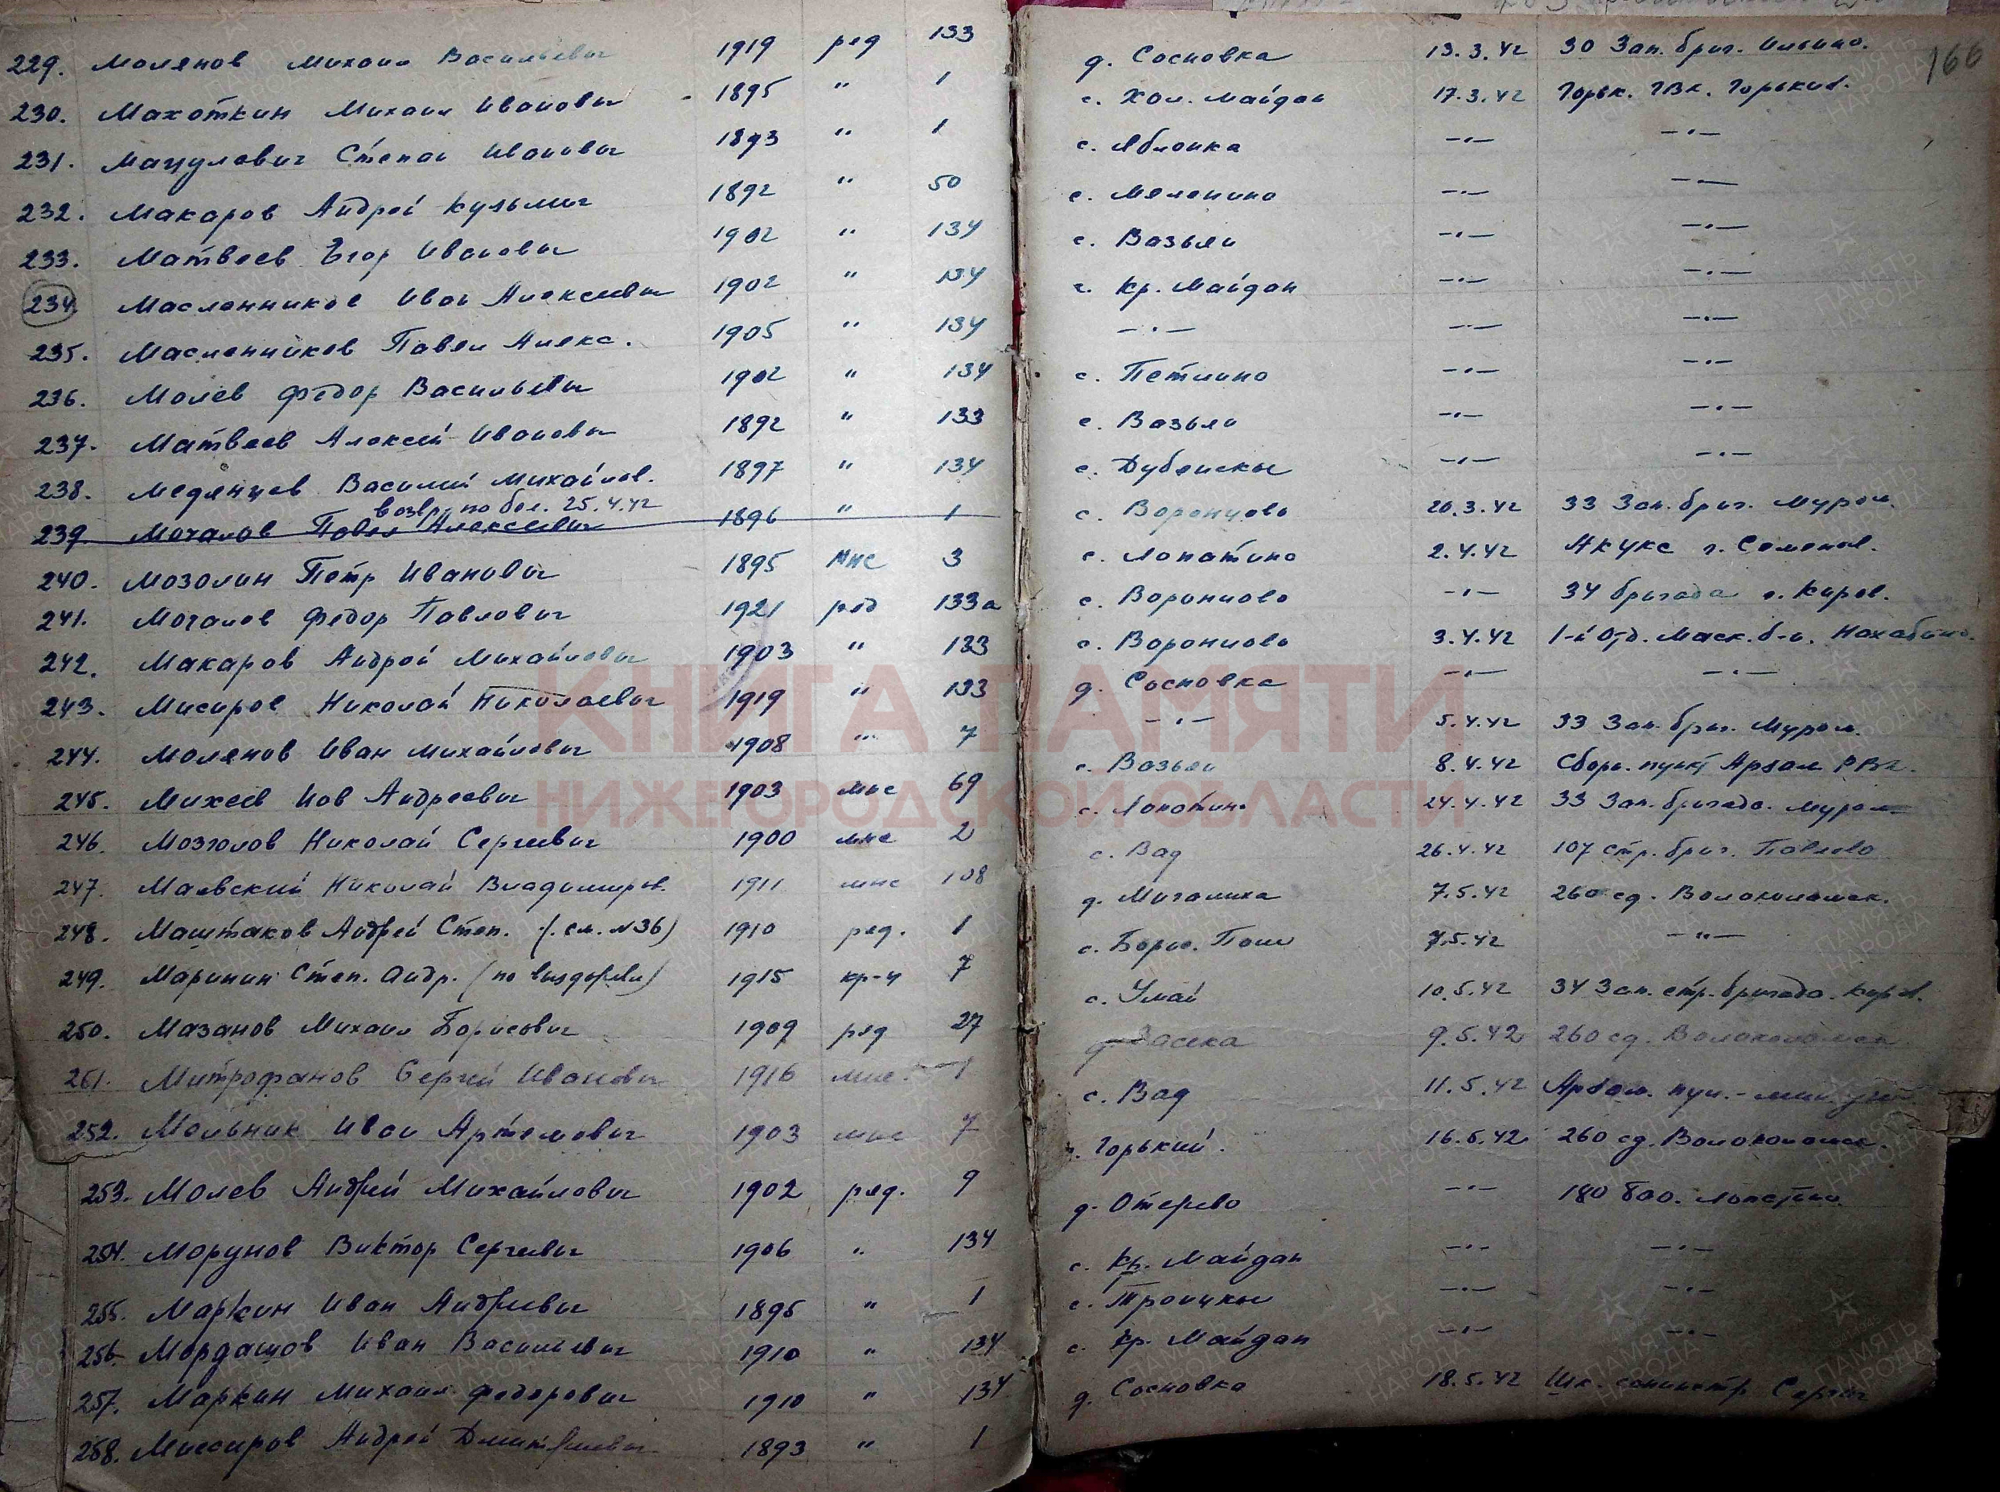 166
229. Молянов Михаил Васильевич 1919 ряд 133 д. Сосновка 13.3.42 30 Зап. бриг. Ильино.
230. Махоткин Михаил Иванович 1895 " 1 с. Хол. Майдан 17.3.42 Горьк. ГВК. Горький.
231. Мацулевич Степан Иванович 1893 " 1 с. Яблонка —"— —"—
232. Макаров Андрей Кузьмич 1892 " 50 с. Меленино —"— —"—
233. Матвеев Егор Иванович 1902 " 134 с. Вазьян —"— —"—
234. Масленников Иван Алексеевич 1902 " 134 с. Кр. Майдан —"— —"—
235. Масленников Павел Алекс. 1905 " 134 —"— —"— —"—
236. Молев Федор Васильевич 1902 " 134 с. Петлино —"— —"—
237. Матвеев Алексей Иванович 1892 " 133 с. Вазьян —"— —"—
238. Медянцев Василий Михайлов. 1897 " 134 с. Дубенское —"— —"—
возвр. по бол. 25.4.42
239. Мочалов Павел Алексеевич 1896 " 1 с. Воронцово 20.3.42 33 Зап. бриг. Муром.
240. Мозолин Петр Иванович 1895 мнс 3 с. Лопатино 2.4.42 АКУКС г. Семенов.
241. Мочалов Федор Павлович 1921 ряд 133а с. Воронцово —"— 34 бригада г. Киров.
242. Макаров Андрей Михайлович 1903 " 133 с. Воронцово 3.4.42 1-й Отд. Маск. б-н. Нахабино.
243. Мисиров Николай Николаевич 1919 " 133 д. Сосновка —"— —"—
244. Молянов Иван Михайлович 1908 " 7 —"— 5.4.42 33 Зап. бриг. Муром.
245. Михеев Иов Андреевич 1903 мнс 69 с. Вазьян 8.4.42 Сборн. пункт Арзам. РВК.
246. Мозголов Николай Сергеевич 1900 мнс 2 с. Лопатино 24.4.42 33 Зап. бригада. Муром
247. Маевский Николай Владимиров. 1911 мнс 108 с. Вад 26.4.42 107 стр. бриг. Павлово
248. Маштаков Андрей Степ. (см. №36) 1910 ряд. 1 д. Мигалиха 7.5.42 260 сд. Волоколамск.
249. Маринин Степ. Андр. (по выздоровл) 1915 кр-ц 7 с. Борис. Поле 7.5.42 —"—
250. Мазанов Михаил Борисович 1909 ряд 27 с. Умай 10.5.42 34 Зап. стр. бригада. Киров.
251. Митрофанов Сергей Иванович 1916 мнс. 1 д. Засека 9.5.42 260 сд. Волоколамск
252. Мельник Иван Артемович 1903 мнс 7 с. Вад 11.5.42 Арзам. пул.-мин. уч.
253. Молев Андрей Михайлович 1902 ряд. 9 г. Горький. 16.5.42 260 сд. Волоколамск.
254. Морунов Виктор Сергеевич 1906 " 134 д. Отерево —"— 180 бао. Лопатино
255. Маркин Иван Андреевич 1895 " 1 с. Кр. Майдан —"— —"—
256. Мордашов Иван Васильевич 1910 " 134 с. Троицкое —"— —"—
257. Маркин Михаил Федорович 1910 " 134 с. Кр. Майдан —"— —"—
258. Миссиров Андрей Дмитриевич 1893 " 1 д. Сосновка 18.5.42 Шк. Сергач
КНИГА ПАМЯТИ
НИЖЕГОРОДСКОЙ ОБЛАСТИ